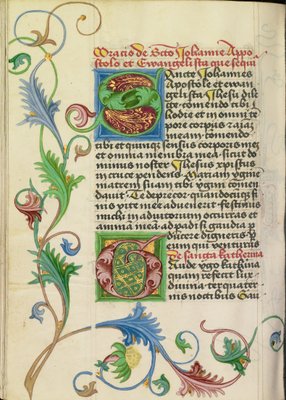 Oracio de Scto Johanne Appo
stolo et Ewangelista que sequit
Sancte Johannes
Apostole et ewan
gelista Jhesu
te comendo tibi
hodie et in omni te
pore corpus et aiaz
meam comendo
tibi et quinque sensus corporis mei
et omnia membra mea sicut do
minus noster Jhesus xpistus
in cruce pendens Mariam virgine
matrem suam tibi virgini comen
davit Te deprecor quandocunque fi
nis vite mee advenerit festinus
michi in adiutorium occurras et
animam mea ad padisi gaudia p
ducere digneris p
eum qui venturus
De sancta katherina
Aude virgo katherina
quam refecit lux
divina ter quater
mis noctibus Gau